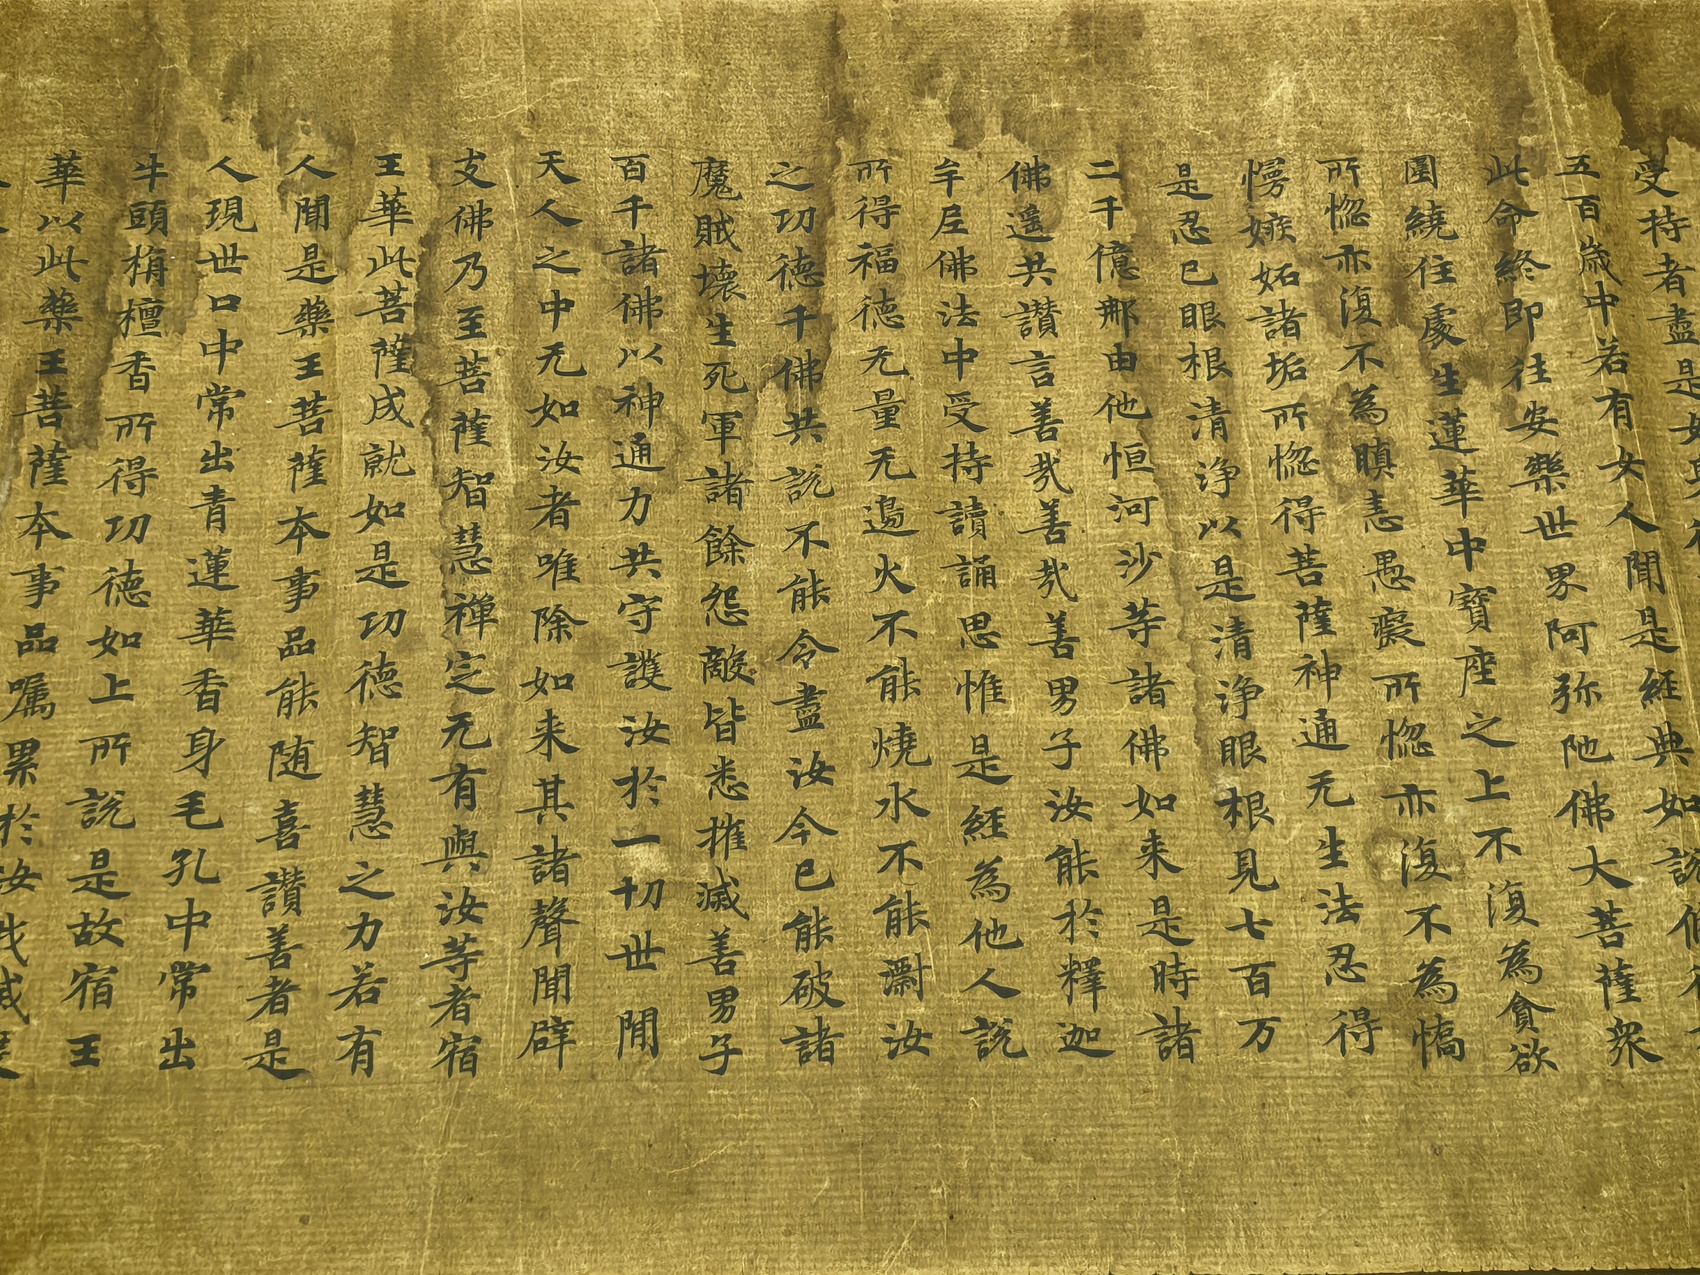 受持者盡是女身後
五百歲中若有女人聞是經典如說修行
此命終即往安樂世界阿弥陁佛大菩薩衆
圍繞住處生蓮華中寶座之上不復為貪欲
所惱亦復不為瞋恚愚癡所惱亦復不為憍
慢嫉妬諸垢所惱得菩薩神通无生法忍得
是忍已眼根清淨以是清淨眼根見七百万
二千億那由他恒河沙等諸佛如来是時諸
佛遥共讃言善哉善哉善男子汝能於釋迦
牟尼佛法中受持讀誦思惟是經為他人說
所得福德无量无邊火不能燒水不能汝
之功德千佛共說不能令盡汝今已能破諸
魔賊壊生死軍諸餘怨敵皆悉摧滅善男子
百千諸佛以神通力共守護汝於一切世間
天人之中无如汝者唯除如来其諸聲聞辟
支佛乃至菩薩智慧禪定无有與汝等者宿
王華此菩薩成就如是功德智慧之力若有
人聞是藥王菩薩本事品能随喜讃善者是
人現世口中常出青蓮華香身毛孔中常出
牛頭栴檀香所得功德如上所說是故宿王
華以此藥王菩薩本事品囑累於汝我滅度